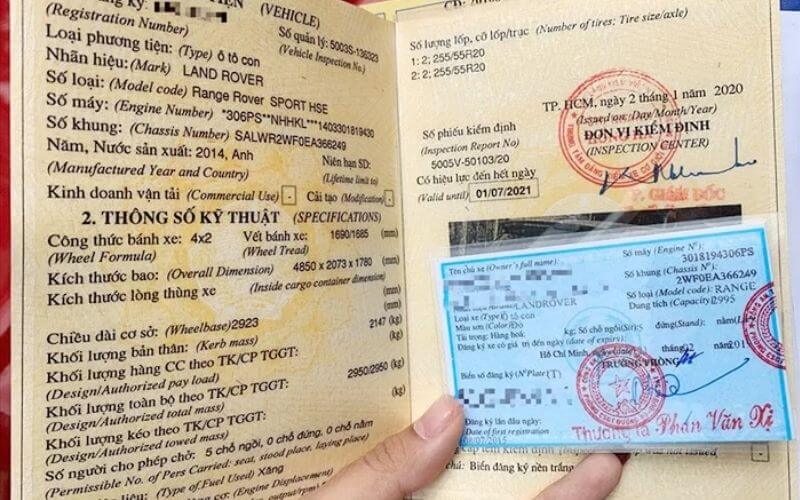 (VEHICLE)
(Registration Number)
Số quản lý: 5003S-136323
Loại phương tiện: (Type) ô tô con
(Vehicle Inspection No.)
Nhãn hiệu: (Mark) LAND ROVER
Số loại: (Model code) Range Rover SPORT HSE
Số máy: (Engine Number) *306PS**NHHKL***1403301819430
Số khung: (Chassis Number) SALWR2WF0EA366249
Năm, Nước sản xuất: 2014, Anh
Niên hạn SD:
(Manufactured Year and Country)
(Lifetime limit to)
Kinh doanh vận tải (Commercial Use) - Cải tạo (Modification) -
2. THÔNG SỐ KỸ THUẬT (SPECIFICATIONS)
Công thức bánh xe: 4x2 Vết bánh xe: 1690/1685 (mm)
(Wheel Formula) (Wheel Tread)
Kích thước bao: (Overall Dimension) 4850 x 2073 x 1780 (mm)
Kích thước lòng thùng xe (Inside cargo container dimension)
(mm)
(mm)
Chiều dài cơ sở: (Wheelbase) 2923
Khối lượng bản thân: (Kerb mass) 2147 (kg)
Khối lượng hàng CC theo TK/CP TGGT: (kg)
(Design/Authorized pay load)
Khối lượng toàn bộ theo TK/CP TGGT: 2950/2950 (kg)
(Design/Authorized total mass)
Khối lượng kéo theo TK/CP TGGT: (kg)
(Design/Authorized towed mass)
Số người cho phép chở: 5 chỗ ngồi, 0 chỗ đứng, 0 chỗ nằm
(Permissible No. of Pers Carried: seat, stood place, laying place)
(Type of Fuel Used) Xăng
(Engine Displacement)
Số lượng lốp, cỡ lốp/trục (Number of tires; Tire size/axle)
1: 2; 255/55R20
2: 2; 255/55R20
TP. HCM, ngày 2 tháng 1 năm 2020
(Issued on: Day/Month/Year)
Số phiếu kiểm định
ĐƠN VỊ KIỂM ĐỊNH
(Inspection Report No)
(INSPECTION CENTER)
5005V-50103/20
Có hiệu lực đến hết ngày
(Valid until) 01/07/2021
P. GIÁM ĐỐC
Tên chủ xe (Owner's full name):
Số máy (Engine Nº):
3018194306PS
Số khung (Chassis Nº):
2WF0EA366249
LANDROVER
Số loại (Model code): RANGE
Loại xe (Type) Ô tô con
Dung tích (Capacity) 2995
Màu sơn (Color) Đỏ
Tải trọng: Hàng hoá: kg; Số chỗ ngồi (Sit): 5 đứng (Stand): nằm
Đăng ký xe có giá trị đến ngày (date of expiry):
Hồ Chí Minh, ngày
TRƯỞNG PHÒNG
Biển số đăng ký (Nº Plate)
Đăng ký lần đầu ngày
Date of first registration
Thượng tá Phan Văn Xi
Biển đăng ký nền trắng